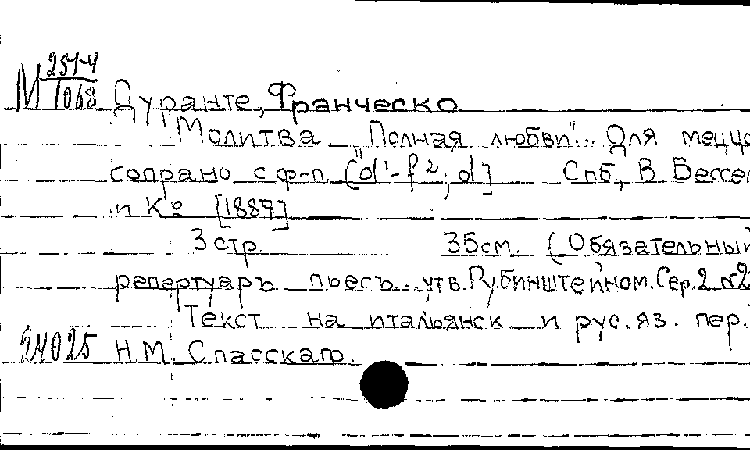 М 251-4
1068 Дуранте, Франческо
Молитва „Полная любви"... Для меццо
сопрано с ф-п. (d¹-f²; d] Спб., В. Бессе
и К° [1887]
3 стр. 35 см. (Обязательный
репертуаръ пьесъ.. утв. Рубинштейном. Сер. 2 №2
Текст на итальянск и рус. яз. пер.
24025 Н. М. Спасскаго.